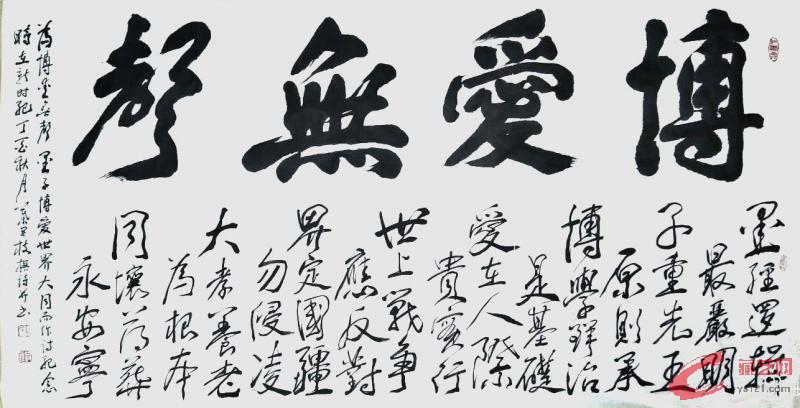 博愛無聲
墨經邏輯
最嚴明
子重先王
原則承
博學治
是基礎
愛在人際
貴實行
世上戰争
應反對
界定國疆
勿侵凌
大孝養老
為根本
同壤薄葬
永安寧
為博無聲 墨子博愛世界大同而作詩紀念
時在新紀丁酉秋月撰詩并書